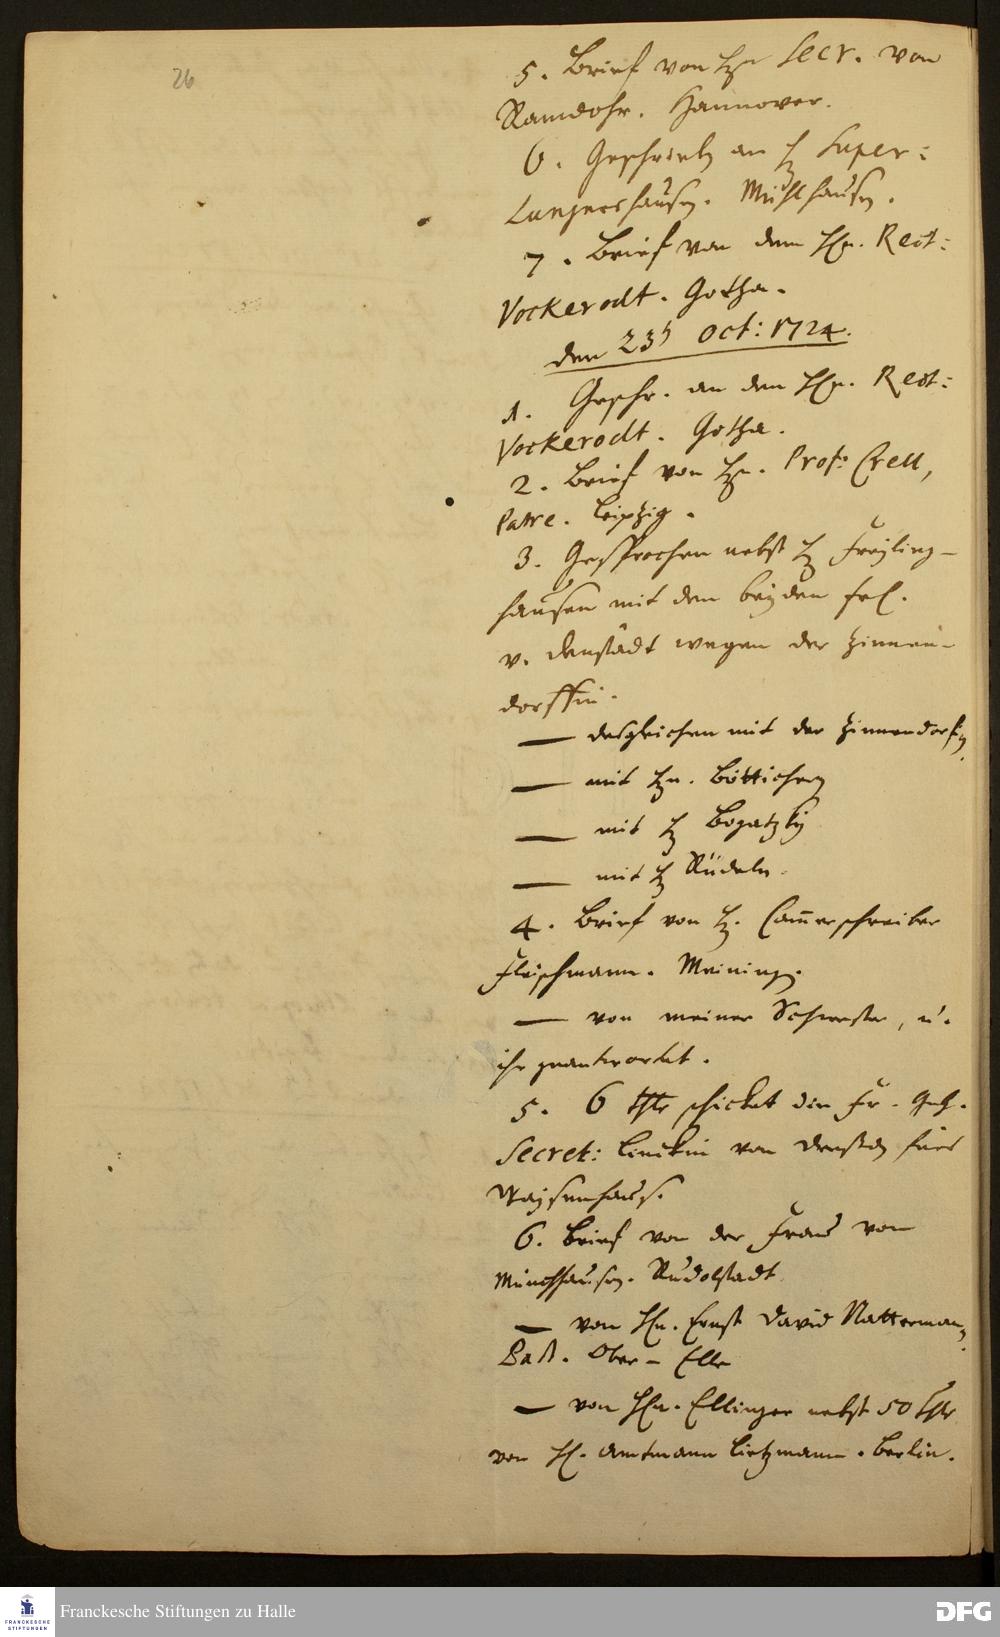 26
5. Brief von Hn Secr. von
Ramdohr. Hannover.
6. Geschrieb. an H Super:
Lungershausen. Mühlhausen.
7. Brief von dem Hn. Rect:
Vockerodt. Gotha.
den 23ten Oct: 1724.
1. Geschr. an den Hn. Rect:
Vockerodt. Gotha.
2. Brief von Hn. Prof: Crell,
Patre. Leipzig.
3. Gesprochen nebst H Freyling-
hausen mit den beyden frl.
v. Denstädt wegen der Zinnen-
dorffin.
— desgleichen mit der Zinnendorfin
— mit Hn. Bötticher
— mit H Bogatzky
— mit H Rüdeln.
4. Brief von H. Cam̄erschreiber
Fleischmann. Meiningen.
— von meiner Schwester, u.
ihr geantwortet.
5. 6 thlr schicket die Fr. Geh.
Secret: Linckin von Dresden fürs
Waysenhaus.
6. Brief von der Frau von
Münchhausen. Rudolstadt
— von Hn. Ernst David Natterman,
Past. Ober-Elle
— von Hn. Ellinger nebst 50 thlr
von H. Amtmann Lietzmann. Berlin.
FRANCKESCHE
STIFTUNGEN
Franckesche Stiftungen zu Halle
DFG